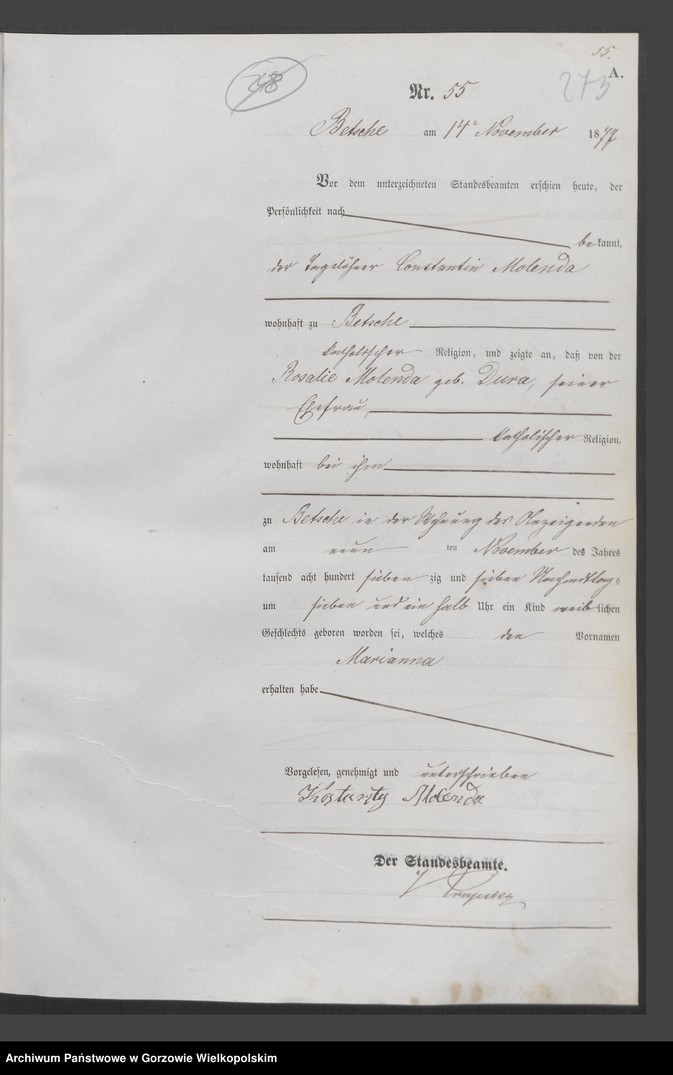 55.
273
A.
Nr. 55
Betsche am 14ᵗ November 1877
Vor dem unterzeichneten Standesbeamten erschien heute, der
Persönlichkeit nach
bekannt,
der Tagelöhner Constantin Molenda
wohnhaft zu Betsche
katholischer Religion, und zeigte an, daß von der
Rosalie Molenda geb. Dura, seiner
Ehefrau,
katholischer Religion,
wohnhaft bei ihm
zu Betsche in der Wohnung des Anzeigenden
am neun ten November des Jahres
tausend acht hundert sieben zig und sieben Nachmittags
um sieben und ein halb Uhr ein Kind weiblichen
Geschlechts geboren worden sei, welches den Vornamen
Marianna
erhalten habe
Vorgelesen, genehmigt und unterschrieben
Molenda
Der Standesbeamte.
Archiwum Państwowe w Gorzowie Wielkopolskim